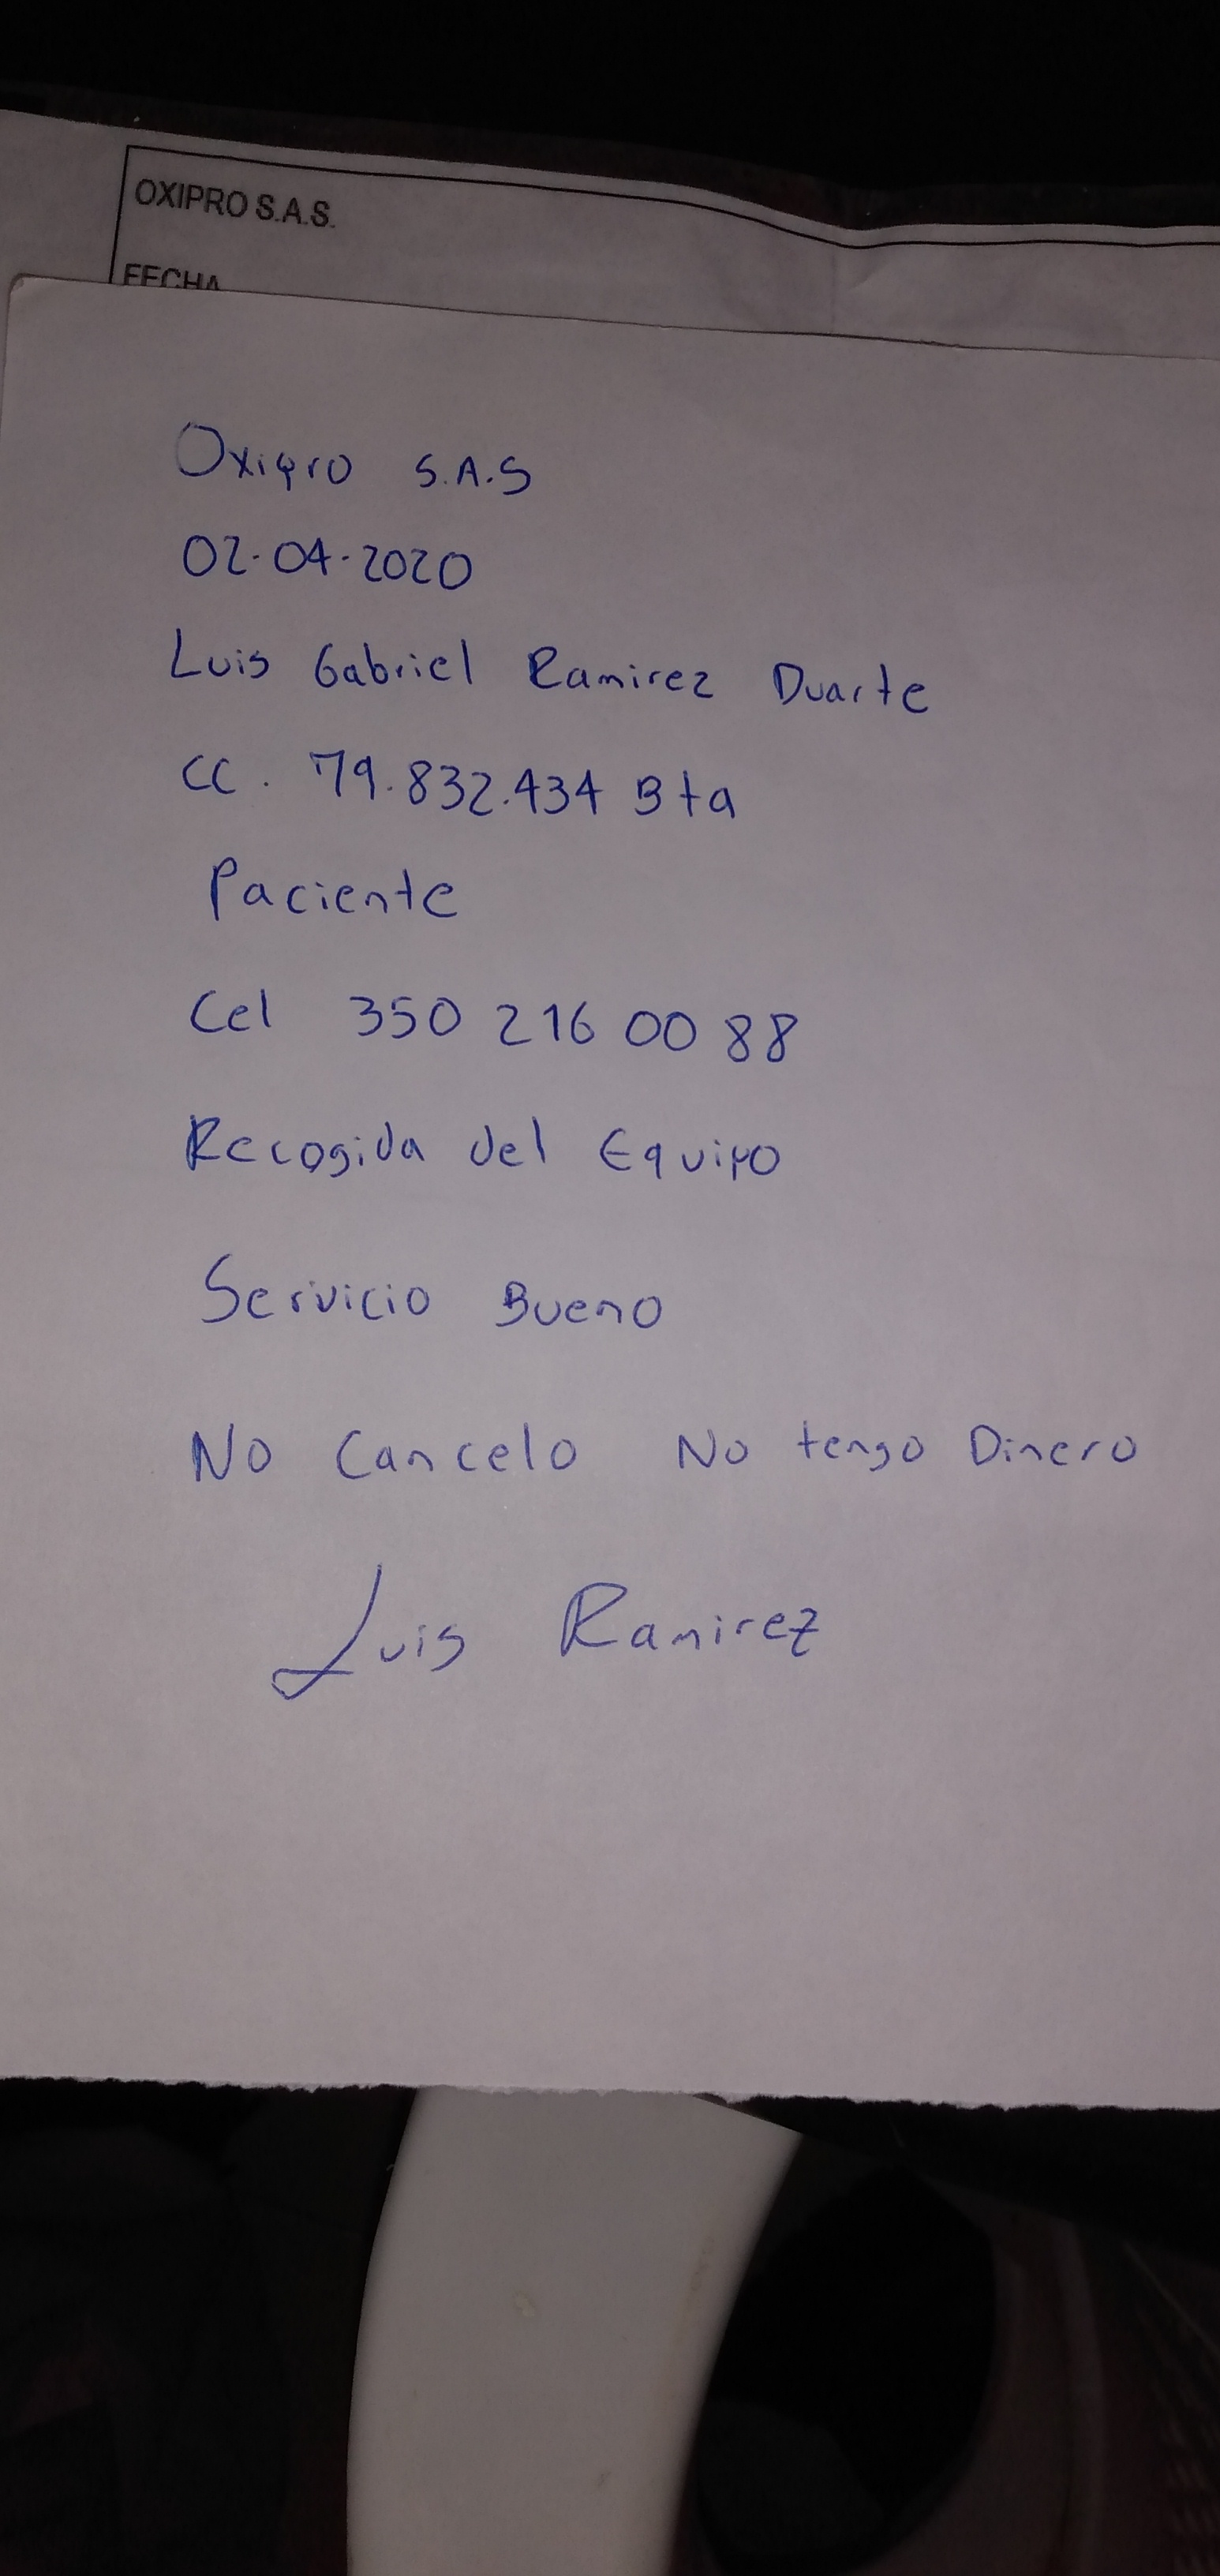 OXIPRO S.A.S.
FECHA
Oxipro S.A.S
02.04.2020
Luis Gabriel Ramirez Duarte
CC. 79.832.434 Bta
Paciente
Cel 350 216 00 88
Recogida del Equipo
Servicio Bueno
No Cancelo No tengo Dinero
Luis Ramirez